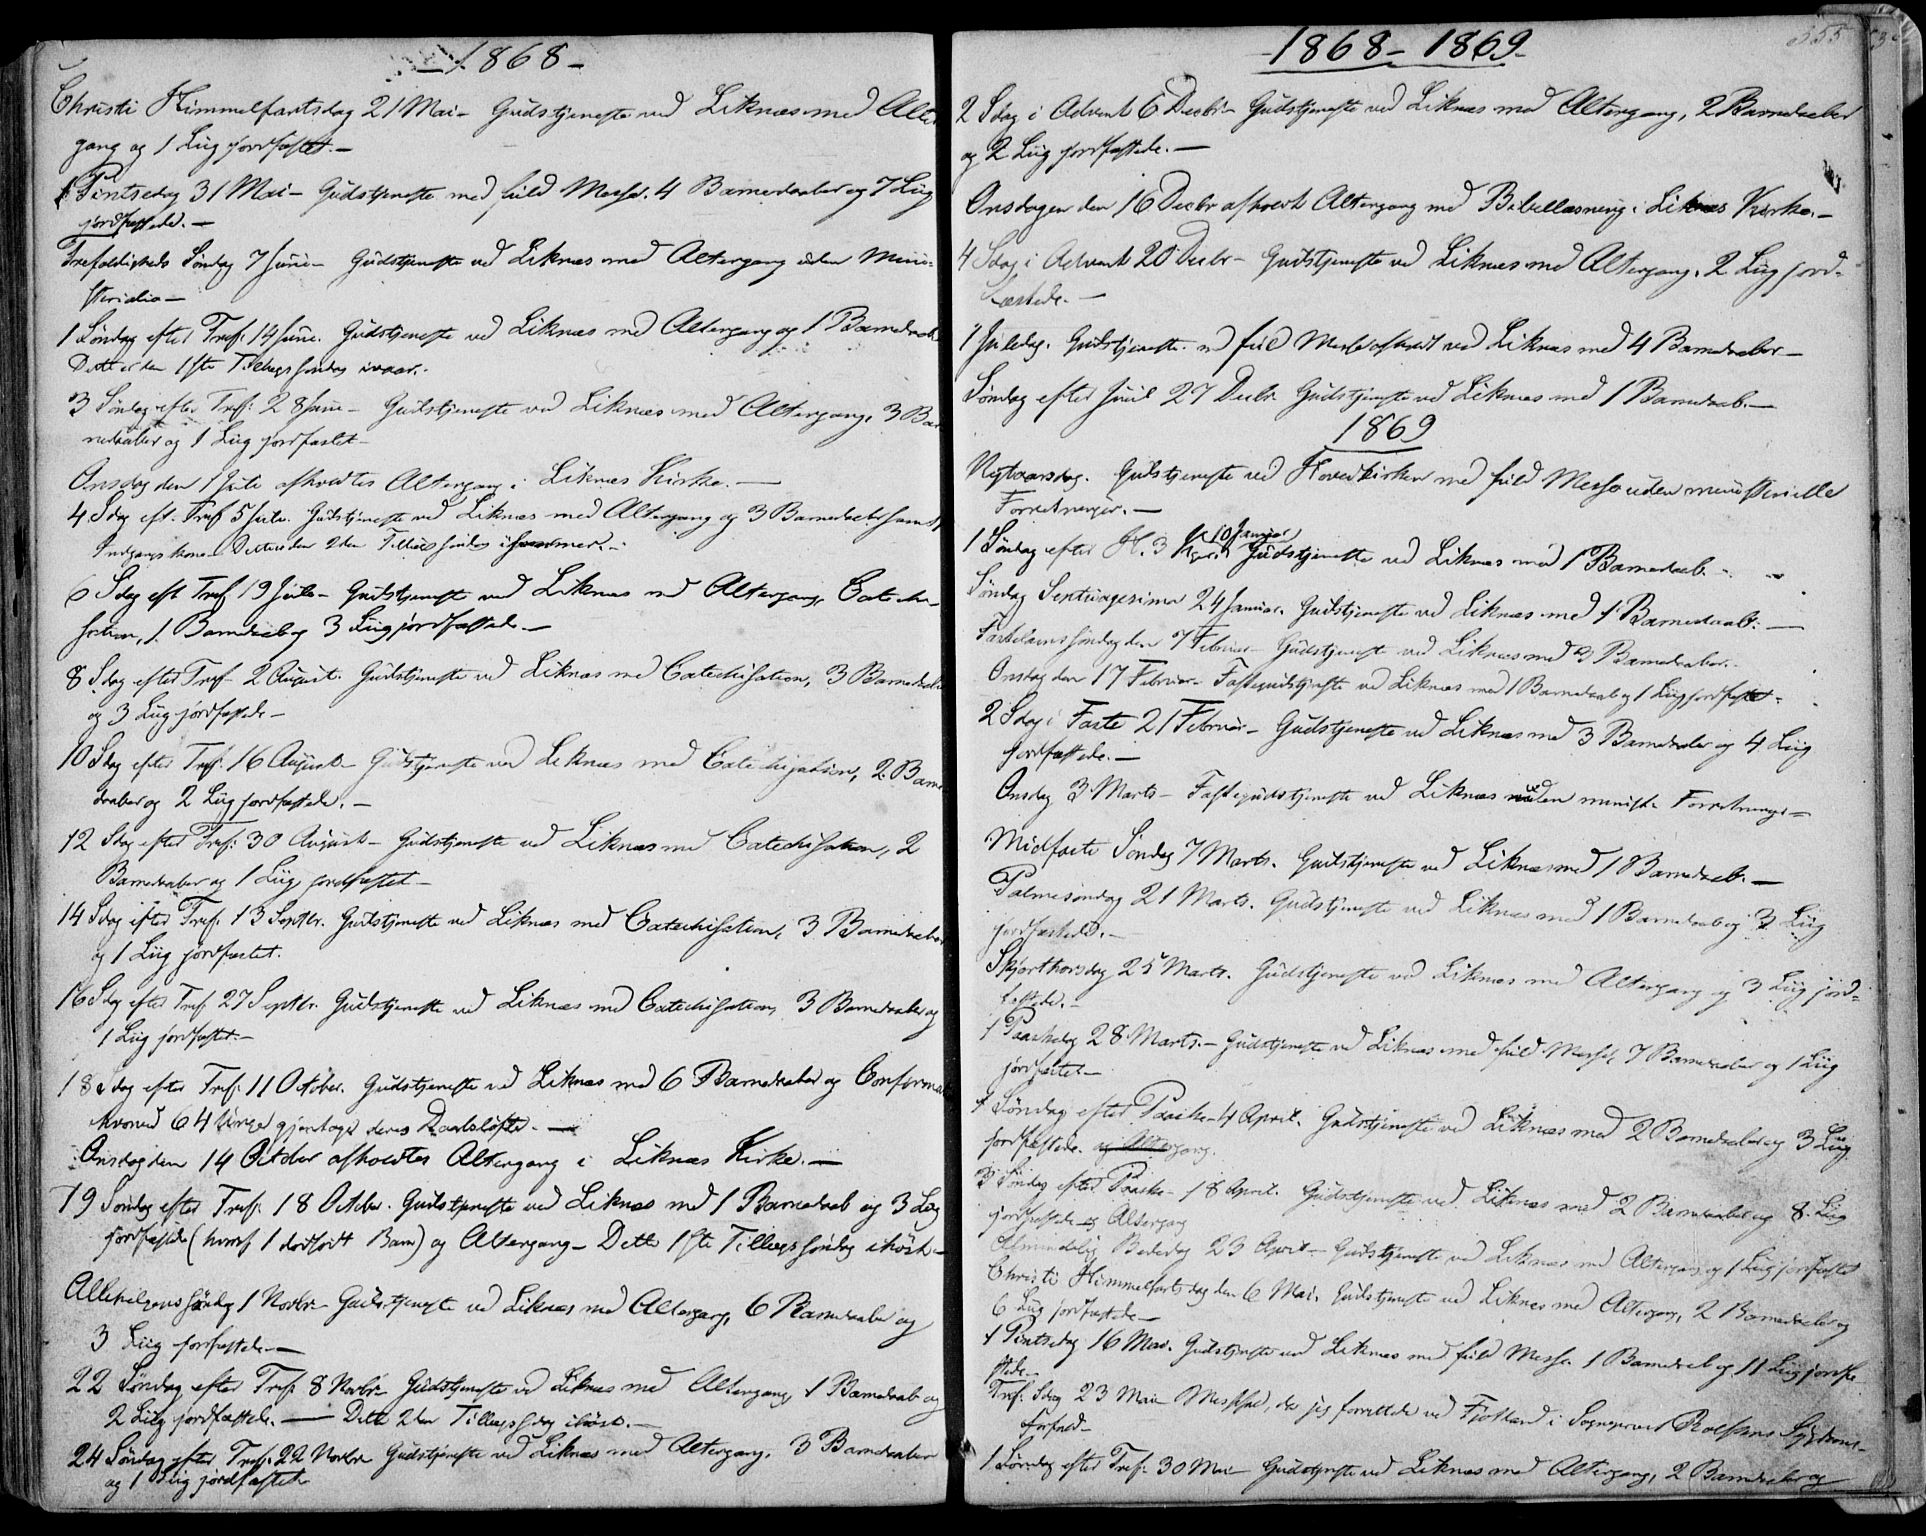 -1868-
Christi Himmelfartsdag 21 Mai- Gudstjeneste ved Liknæs med Alter
gang og 1 Liig jordfæstet.-
1 Pintsedag 31 Mai- Gudstjeneste med fuld Messe. 4 Barnedaaber og 7 Liig
jordfæstede.-
Trefoldigheds Søndag 7 Juni- Gudstjeneste ved Liknæs med Altergang uden Mini=
sterialia-
1 Søndag efter Tref: 14 Juni. Gudstjeneste ved Liknæs med Altergang og 1 Barnedaab
Dette er den 1ste Tillægssøndag ivaar.-
3 Søndag efter Tref: 28 Juni- Gudstjeneste ved Liknæs med Altergang, 3 Bar
nedaaber og 1 Liig jordfæstet-
Onsdag den 1 Juli afholdtes Altergang i Liknæs Kirke.-
4 Sdag eft. Tref 5 Juli. Gudstjeneste ved Liknæs med Altergang og 3 Barnedaaber samt
Indgangskone- Dette er den 2den Tillægssøndag i sommer.-
6 Sdag eft Tref 19 Juli- Gudstjeneste ved Liknæs med Altergang, Cateche
sation, 1 Barnedaab og 3 Liig jordfæstede-
8 Sdag efter Tref- 2 August. Gudstjeneste ved Liknæs med Catechisation, 3 Barnedaaber
og 3 Liig jordfæstede-
10 Sdag efter Tref: 16 August- Gudstjeneste ved Liknæs med Catechisation, 2 Barne
daaber og 2 Liig jordfæstede.-
12 Sdag efter Tref: 30 August- Gudstjeneste ved Liknæs med Catechisation, 2
Barnedaaber og 1 Liig jordfæstet-
14 Sdag efter Tref: 13 Septbr. Gudstjeneste ved Liknæs med Catechisation, 3 Barnedaaber
og 1 Liig jordfæstet.
16 Sdag efter Tref 27 Septbr. Gudstjeneste ved Liknæs med Catechisation, 3 Barnedaaber og
1 Liig jordfæstet.-
18 Sdag efter Tref: 11 October. Gudstjeneste ved Liknæs med 6 Barnedaaber og Confirma
hvorved 64 Unge gjentoge deres Daabsløfte.-
Onsdag den 14 October afholdtes Altergang i Liknæs Kirke.-
19 Søndag efter Tref: 18 October. Gudstjeneste ved Liknæs med 1 Barnedaab og 3 Liig
jordfæstede (hvoraf 1 dødfødt Barn) og Altergang- Dette 1ste Tillægssøndag ihøst-
Allehelgens søndag 1 Novbr- Gudstjeneste ved Liknæs med Altergang, 6 Barnedaaber og
3 Liig jordfæstede-
22 Søndag efter Tref: 8 Novbr- Gudstjeneste ved Liknæs med Altergang, 1 Barnedaab og
2 Liig jordfæstede.- Dette 2den Tillægssdag ihøst.-
24 Søndag efter Tref: 22 Novbr Gudstjeneste ved Liknæs med Altergang, 3 Barnedaaber
og 1 Liig jordfæstet-
-1868-1869-
355
2 Sdag i Advent 6 Decbr- Gudstjeneste ved Liknæs med Altergang, 2 Barnedaaber
og 2 Liig jordfæstede.-
Onsdagen den 16 Decbr afholdt Altergang med Bibellæsning i Liknæs Kirke.-
4 Sdag i Advent 20 Decbr- Gudstjeneste ved Liknæs med Altergang, 2 Liig jord=
fæstede.-
1 Juledag. Gudstjeneste med fuld Messe afholdt ved Liknæs med 4 Barnedaaber-
Søndag efter Juul 27 Decbr. Gudstjeneste ved Liknæs med 1 Barnedaab.-
1869
Nytaarsdag. Gudstjeneste ved Hovedkirken med fuld Messe uden ministerielle
Forretninger.-
1 Søndag efter H. 3 K. 10 Januar Gudstjeneste ved Liknæs med 1 Barnedaab.-
Søndag Septuagesima 24 Januar. Gudstjeneste ved Liknæs med 1 Barnedaab.-
Fastelavnssøndag den 7 Februar- Gudstjeneste ved Liknæs med 3 Barnedaaber.-
Onsdag den 17 Februar- Fastegudstjeneste ved Liknæs med 1 Barnedaab og 1 Liig jordfæstet-
2 Sdag i Faste 21 Februar- Gudstjeneste ved Liknæs med 3 Barnedaaber og 4 Liig
jordfæstede.-
Onsdag 3 Marts- Fastegudstjeneste ved Liknæs uden minist. Forretninger-
Midfaste Søndag 7 Marts. Gudstjeneste ved Liknæs med 1 Barnedaab.-
Palmesøndag 21 Marts. Gudstjeneste ved Liknæs med 1 Barnedaab og 3 Liig
jordfæstede.-
Skjærthorsdag 25 Marts. Gudstjeneste ved Liknæs med Altergang og 3 Liig jord=
fæstede.-
1 Paaskedag 28 Marts.- Gudstjeneste ved Liknæs med fuld Messe, 7 Barnedaaber og 1 Liig
jordfæstet-
1 Søndag efter Paaske- 4 April. Gudstjeneste ved Liknæs med 2 Barnedaaber og 3 Liig
jordfæstede. og Altergang.
3 Søndag efter Paaske- 18 April. Gudstjeneste ved Liknæs med 2 Barnedaaber og 8 Liig
jordfæstede og Altergang
Almindelig Bededag 23 April- Gudstjeneste ved Liknæs med Altergang og 1 Liig jordfæstet
Christi Himmelfartsdag den 6 Mai. Gudstjeneste ved Liknæs med Altergang, 2 Barnedaaber og
6 Liig jordfæstede-
1 Pintsedag 16 Mai. Gudstjeneste ved Liknæs med fuld Messe 1 Barnedaab og 11 Liig jordfæ
stede-
Tref: Sdag 23 Mai- Messefald, da jeg forrettede ved Fjotland i Sognepræst Sygdoms-
Forfald-
1 Søndag efter Tref: 30 Mai- Gudstjeneste ved Liknæs med Altergang, 2 Barnedaaber og